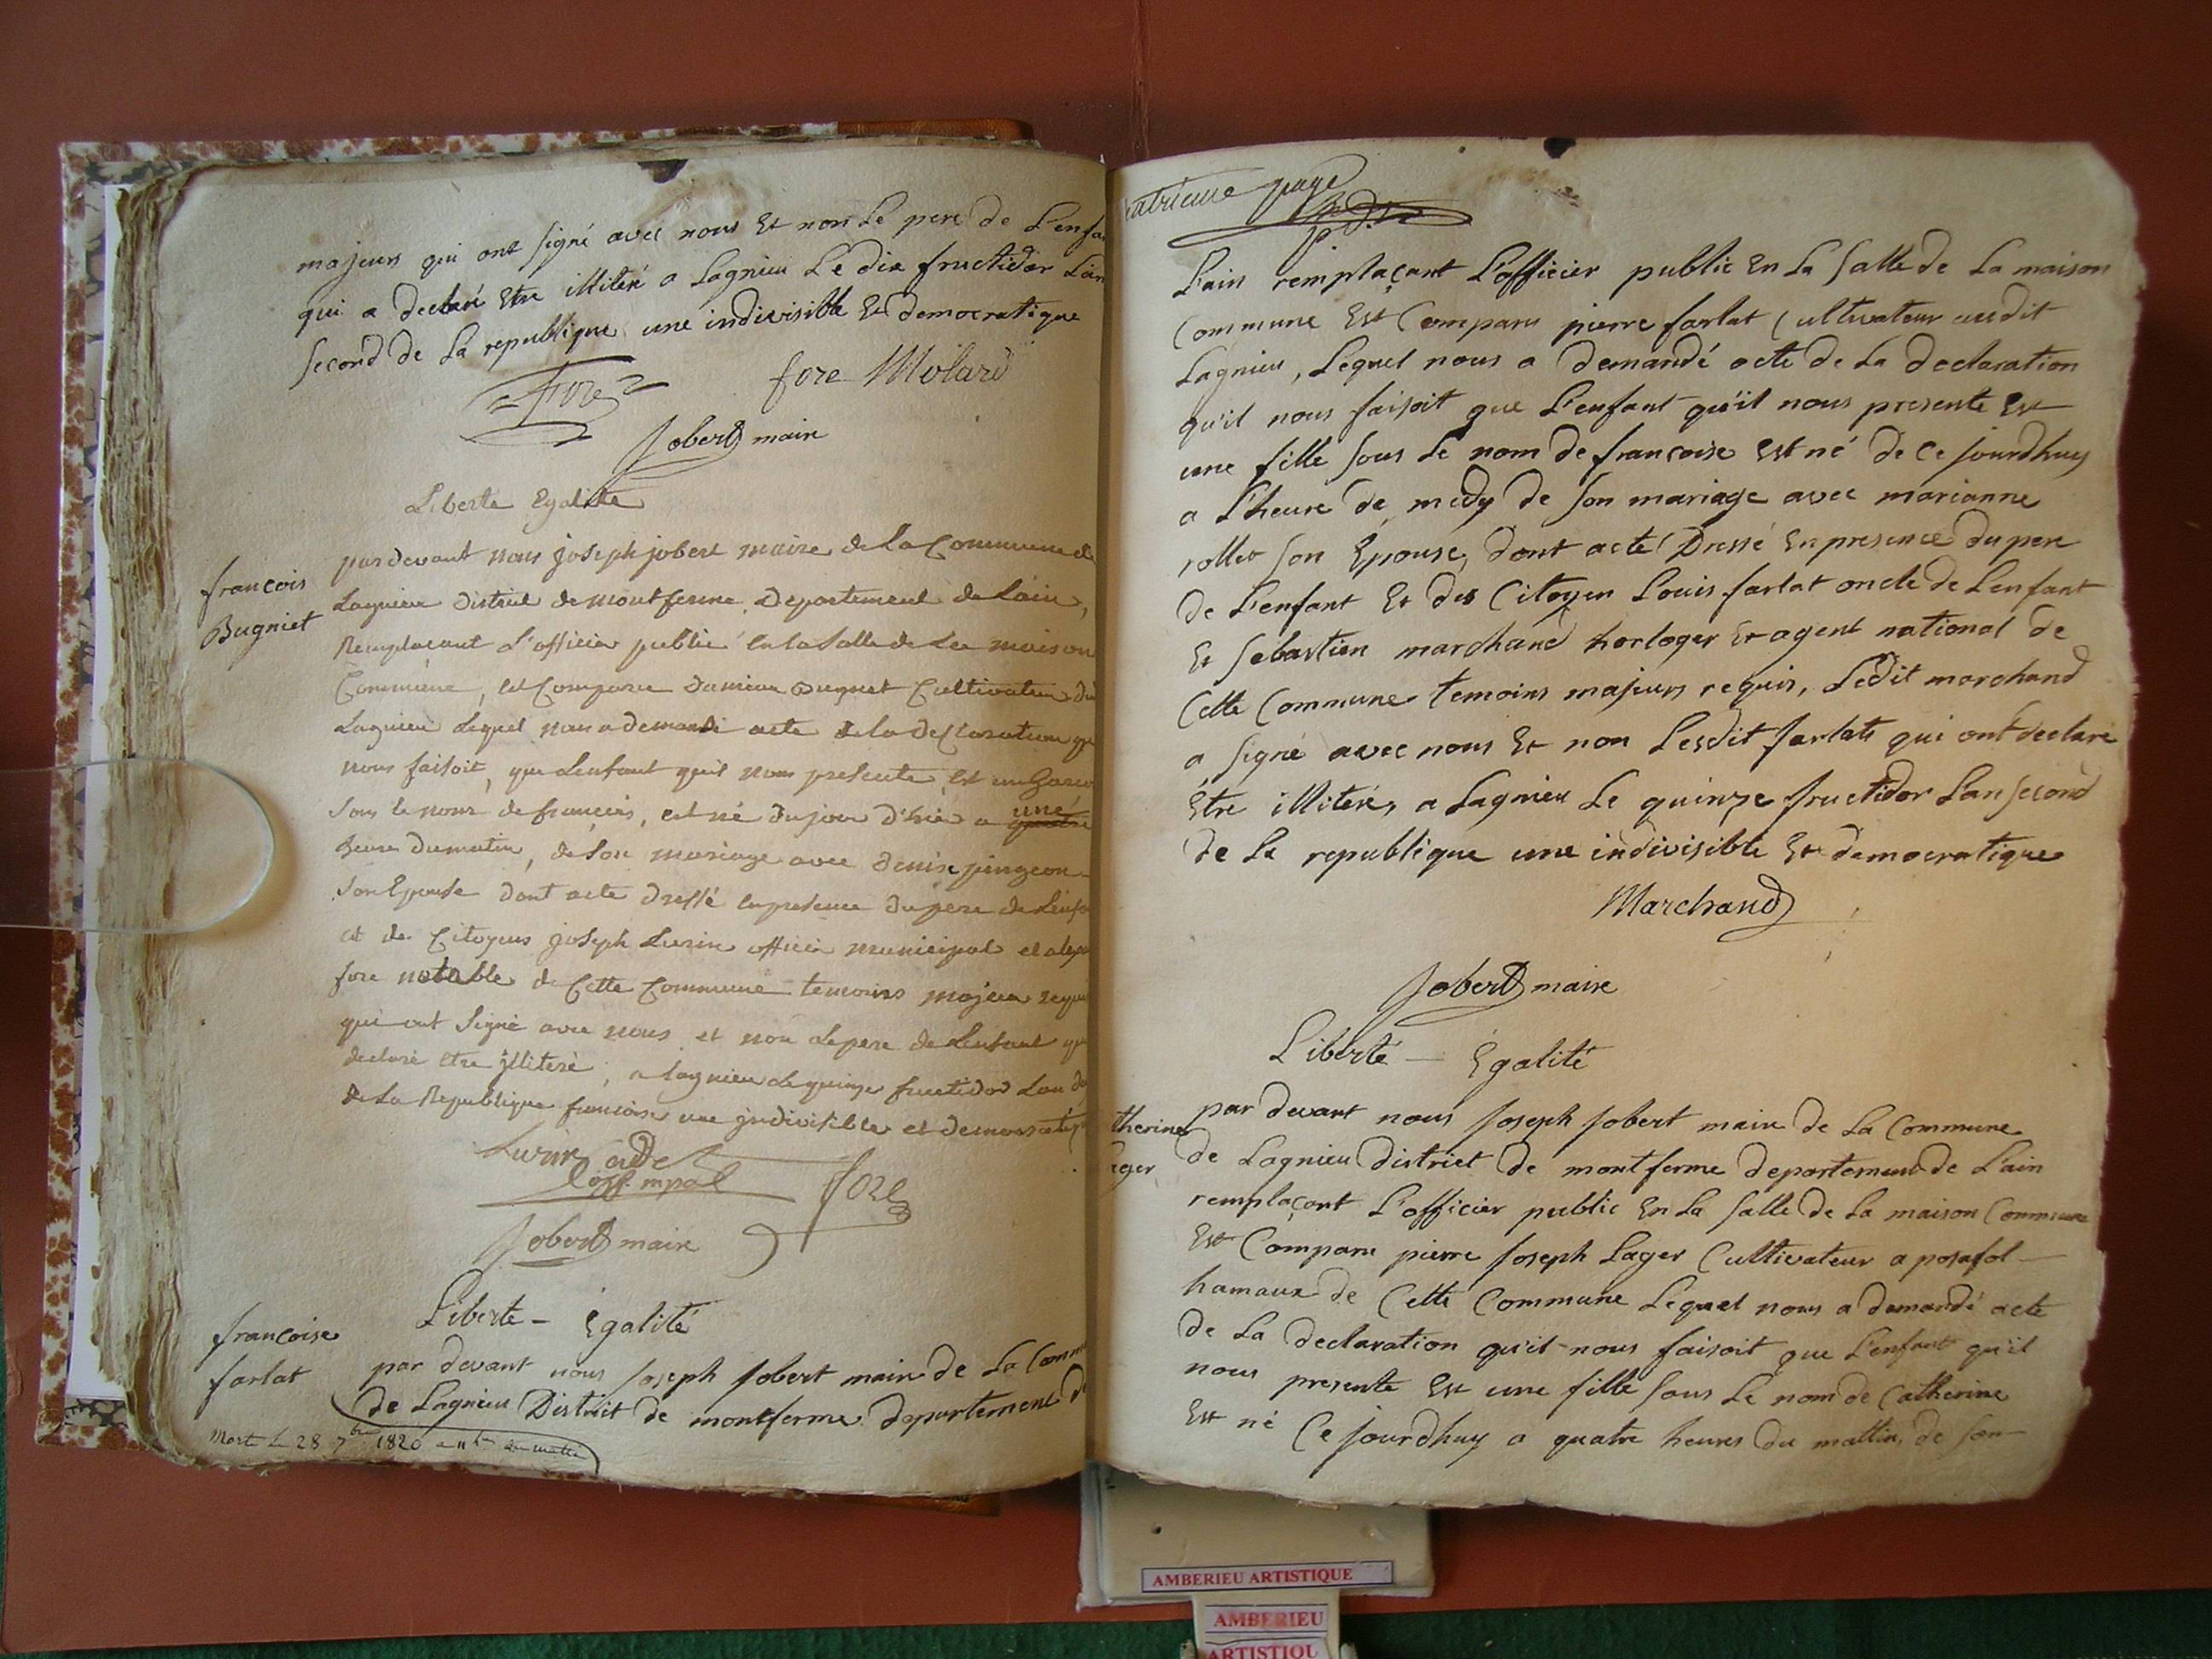 majeurs qui ont signé avec nous Et non Le pere de L'enfa
qui a declaré Etre illiteré a Lagnieu Le dix fructidor L'an
second de La republique une indivisible Et democratique
fore
fore Molard
Jobert maire
Liberte Egalite
françois
Bugniet
pardevant nous joseph jobert maire de La Commune de
Lagnieu District de montferme Departement de Lain,
Remplacant L'officier public en la Salle de La maison
Commune, est Comparu Damien Bugnet Cultivateur du
Lagnieu Lequel nous a demandé acte de la declaration qu
nous faisoit, que Lenfant quil nous presente est un Garco
Sous le nom de françois, est né du jour d'hier a une
heure du matin, de son mariage avec Denise pingeon
Son Epouse dont acte dressé en presence du pere de Lenfa
et de Citoyens joseph Lurin officier municipal et
fore notable de Cette Commune temoins majeur requi
qui ont Signé avec nous et non Le pere de Lenfant qu
declaré etre illiteré, a lagnieu le quinze fructidor Lan
de La Republique francoise une indivisible et democratiq
Lurin
off. mpal
fore
Jobert maire
Liberte - Egalité
francoise
farlat
par devant nous Joseph Jobert maire de La Comm
de Lagnieu District de montferme departement de
Mort le 28 7bre 1820 a 11h du matin
atrieme page
L'ain remplaçant L'officier public En La Salle de La maison
Commune Est Comparu pierre farlat Cultivateur audit
Lagnieu, Lequel nous a demandé acte de La declaration
qu'il nous faisoit que L'enfant qu'il nous presente Est
une fille sous Le nom de francoise Est né de ce Jourdhuy
a L'heure de midy de son mariage avec marianne
rollet son Epouse, dont acte Dressé En presence du pere
de L'enfant Et des Citoyen Louis farlat oncle de Lenfant
Et Sebastien marchand horloger Et agent national de
Cette Commune temoins majeurs requis, Ledit marchand
a signé avec nous Et non Lesdit farlats qui ont declaré
Etre illiterés, a Lagnieu Le quinze fructidor L'an second
de La republique une indivisible Et democratique
Marchand
Jobert maire
Liberté - Egalité
therine
ager
par devant nous Joseph Jobert maire de La Commune
de Lagnieu District de montferme departement de L'ain
remplaçant L'officier public En La Salle de La maison Commune
Est Comparu pierre Joseph Lager Cultivateur a posafol
hamaux de Cette Commune Lequel nous a demandé acte
de La declaration qu'il nous faisoit que L'enfant qu'il
nous presente Est une fille sous Le nom de Catherine
Est né Ce Jourdhuy a quatre heures du mattin, de son
AMBERIEU ARTISTIQUE
AMBERIEU
ARTISTIQU